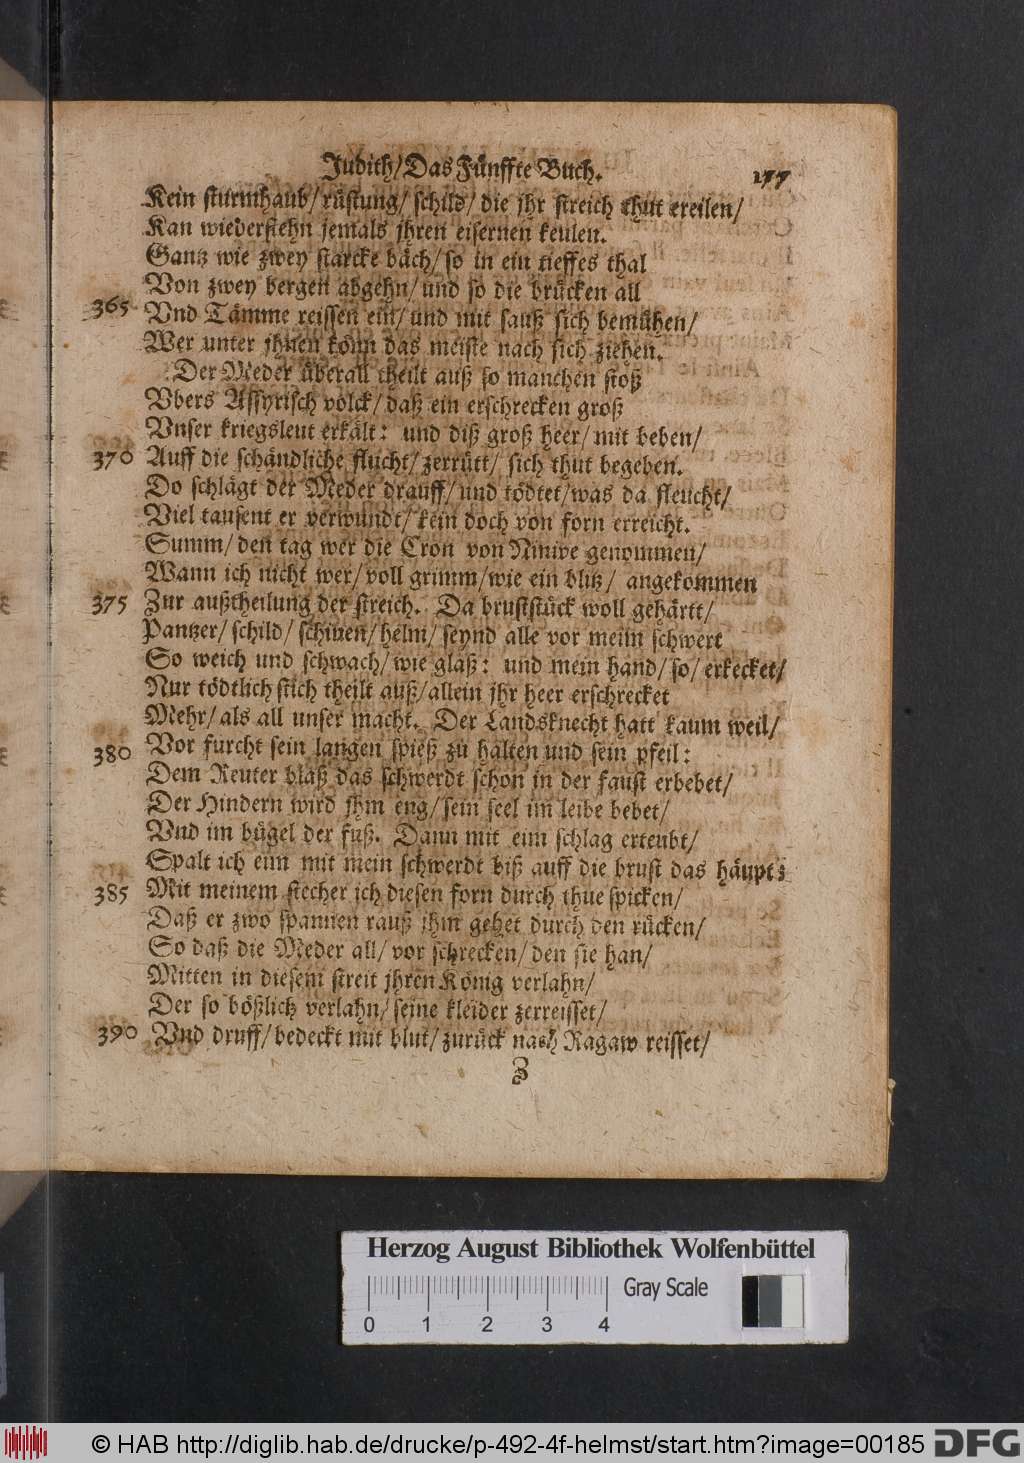 Judith/ Das Fünffte Buch.
177
Kein sturmhaub/ rüstung/ schild/ die jhr streich thut ereilen/
Kan wiederstehn jemals jhren eisernen keulen.
Gantz wie zwey starcke bäch/ so in ein tieffes thal
Von zwey bergen abgehn/ und so die brücken all
365 Vnd Tämme reissen ein/ und mit sauß sich bemühen/
Wer unter jhnen könn das meiste nach sich ziehen.
Der Meder überall theilt auß so manchen stoß
Vbers Assyrisch volck/ daß ein erschrecken groß
Vnser kriegsleut erkält: und diß groß heer/ mit beben/
370 Auff die schändliche flucht/ zerrütt/ sich thut begeben.
Do schlägt der Meder drauff/ und tödtet/ was da fleucht/
Viel tausent er verwundt/ kein doch von forn erreicht.
Summ/ den tag wer die Cron von Ninive genommen/
Wann ich nicht wer/ voll grimm/ wie ein blitz/ angekommen
375 Zur außtheilung der streich. Da bruststück woll gehärtt/
Pantzer/ schild/ schinen/ helm/ seynd alle vor meim schwert
So weich und schwach/ wie gläß: und mein hand/ so/ erkecket/
Nur tödtlich stich theilt auß/ allein jhr heer erschrecket
Mehr/ als all unser macht. Der Landsknecht hatt kaum weil/
380 Vor furcht sein langen spieß zu halten und sein pfeil:
Dem Reuter bläß das schwerdt schon in der faust erbebet/
Der Hindern wird jhm eng/ sein seel im leibe bebet/
Vnd im bügel der fuß. Dann mit eim schlag erteubt/
Spalt ich eim mit mein schwerdt biß auff die brust das häupt:
385 Mit meinem stecher ich diesen forn durch thue spicken/
Daß er zwo spannen rauß jhm gehet durch den rücken/
So daß die Meder all/ vor schrecken/ den sie han/
Mitten in diesem streit jhren König verlahn/
Der so bößlich verlahn/ seine kleider zerreisset/
390 Vnd druff/ bedeckt mit blut/ zurück nach Ragaw reisset/
Z
Herzog August Bibliothek Wolfenbüttel
Gray Scale
0 1 2 3 4
© HAB http://diglib.hab.de/drucke/p-492-4f-helmst/start.htm?image=00185 DFG